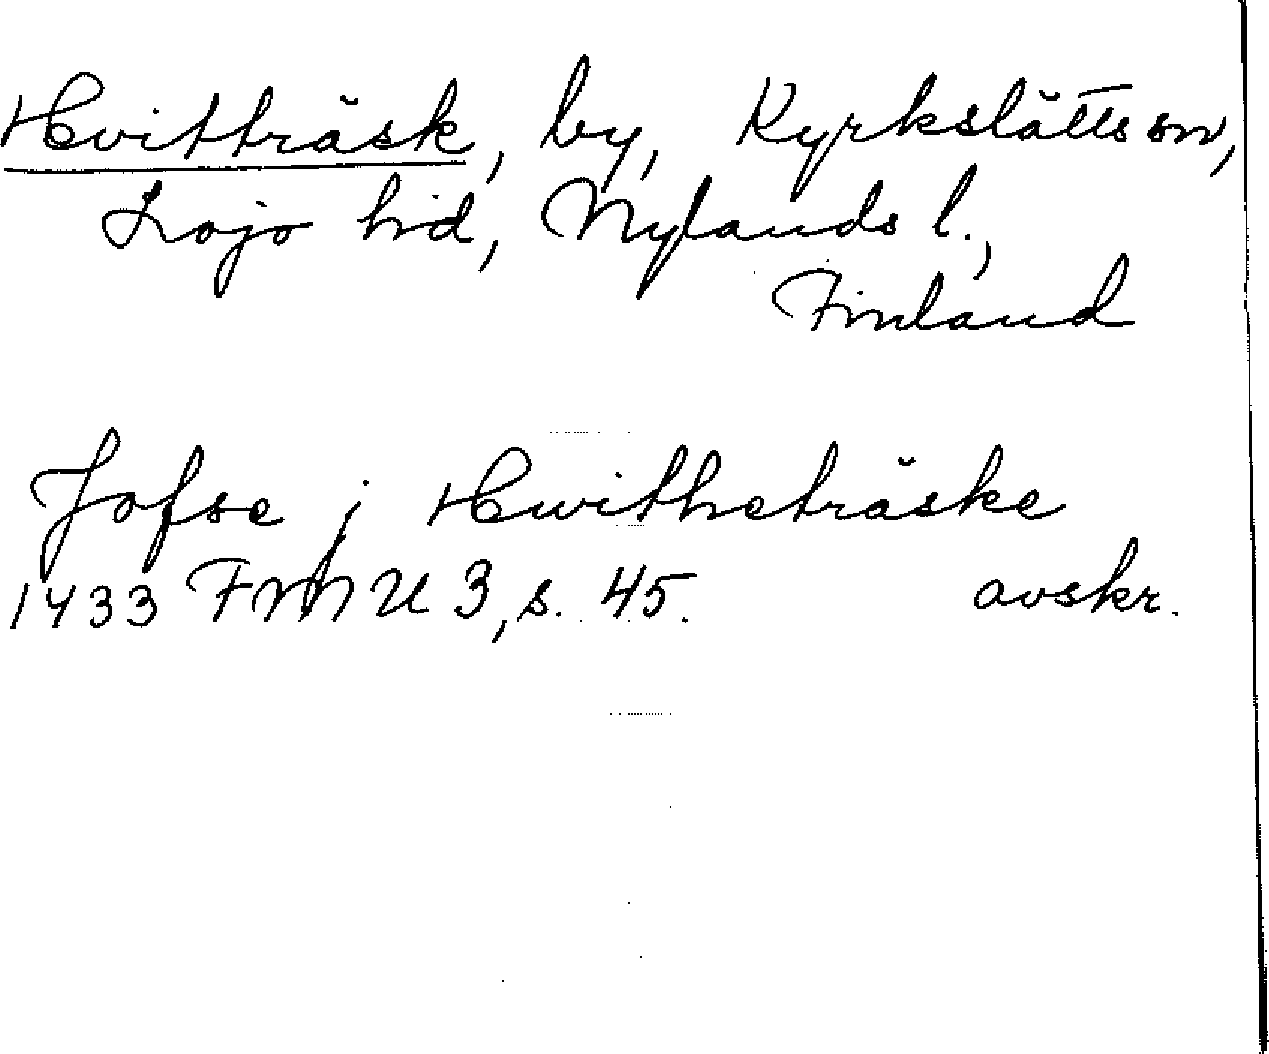 Hvitträsk, by, Kyrkslätts sn,
Lojo hd, Nylands l.,
Finland
Jofse j Hwitheträske
1433 FMU 3, s. 45. avskr.